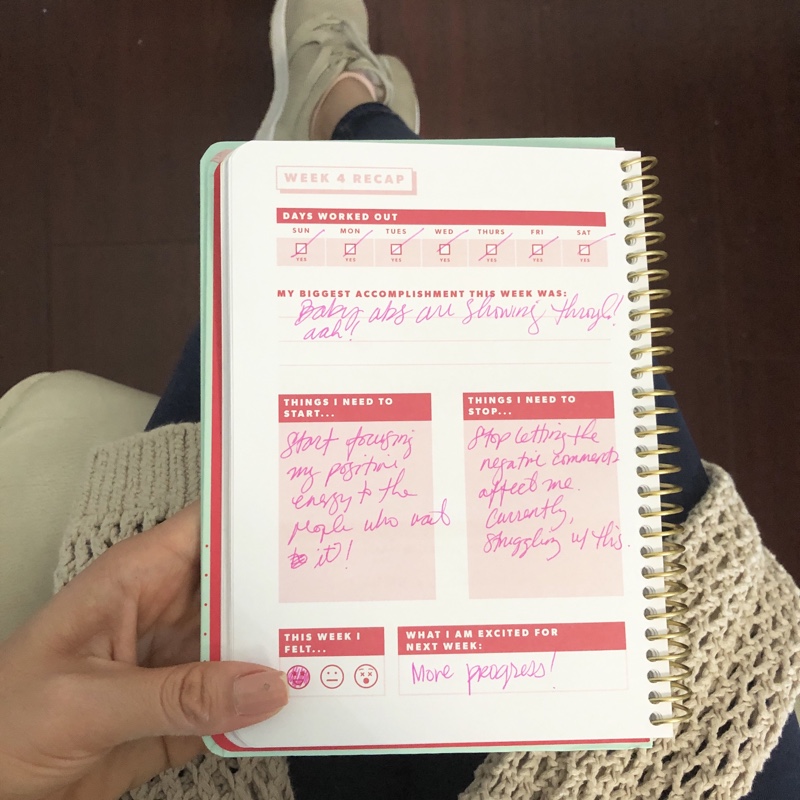 WEEK 4 RECAP
DAYS WORKED OUT
SUN MON TUES WED THURS FRI SAT
YES YES YES YES YES YES YES
MY BIGGEST ACCOMPLISHMENT THIS WEEK WAS:
Baby abs are showing through!
aah!
THINGS I NEED TO
START...
Start focusing
my positive
energy to the
people who want
it!
THINGS I NEED TO
STOP...
Stop letting the
negative comments
affect me.
Currently,
struggling w/ this.
THIS WEEK I
FELT...
WHAT I AM EXCITED FOR
NEXT WEEK:
More progress!